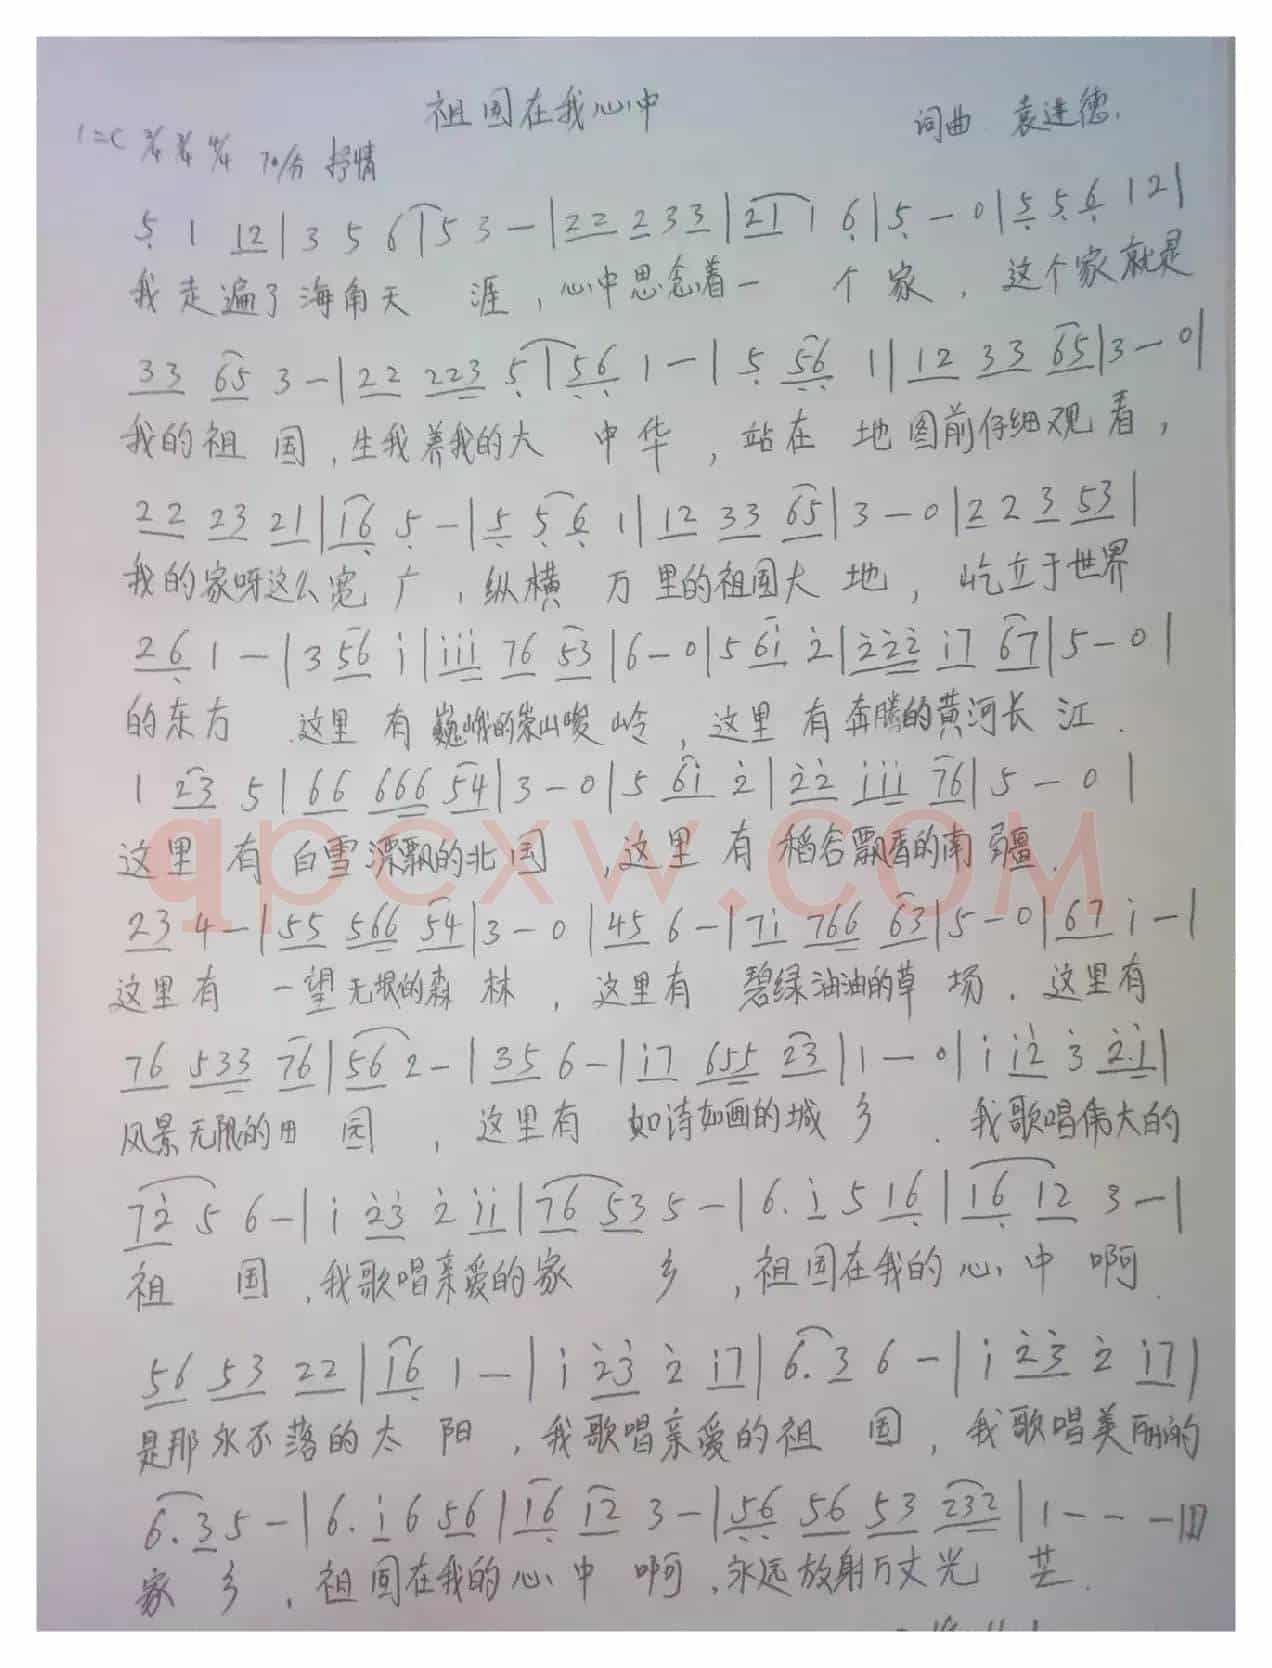 祖国在我心中
词曲 袁进德.
1=C 2/4 3/4 4/4 70/分 抒情
5 1 12 | 3 5 6 1 5 3 - | 22 2 33 | 21 1 6 | 5 - 0 | 5 5 6 1 2 |
我走遍了海角天 涯，心中思念着一 个 家，这个家就是
33 65 3 - | 22 223 5 1 56 1 - | 5 56 1 | 12 33 65 | 3 - 0 |
我的祖 国，生我养我的大 中华，站在 地图前仔细观看，
22 23 21 | 16 5 - | 5 5 6 1 | 12 33 65 | 3 - 0 | 2 2 3 53 |
我的家呀这么宽 广，纵横 万里的祖国大 地，屹立于世界
26 1 - | 3 56 i | iii 76 53 | 6 - 0 | 5 6i 2̇ | 2̇2̇2̇ i7 67 | 5 - 0 |
的东方 .这里 有 巍峨的崇山峻 岭，这里 有奔腾的黄河长 江.
1 23 5 | 66 666 54 | 3 - 0 | 5 6i 2̇ | 2̇2̇ iii 76 | 5 - 0 |
这里 有 白雪漂飘的北 国 ，这里 有 稻谷飘香的南 疆.
qpcxw.com
23 4 - | 55 566 54 | 3 - 0 | 45 6 - | 7i 766 63 | 5 - 0 | 67 i - |
这里有 一望无垠的森 林，这里有 碧绿油油的草 场.这里有
76 533 76 | 56 2 - | 35 6 - | i7 655 23 | 1 - 0 | i i2̇ 3̇ 2̇.i |
风景无限的田 园 ，这里有 如诗如画的城 乡.我歌唱伟大的
72̇ 5 6 - | i 2̇3̇ 2̇ ii | 76 53 5 - | 6. i 5 16 | 16 12 3 - |
祖 国，我歌唱亲爱的家 乡，祖国在我的心 中 啊.
56 53 22 | 16 1 - | i 2̇3̇ 2̇ i7 | 6. 3 6 - | i 2̇3̇ 2̇ i7 |
是那永不落的太 阳，我歌唱亲爱的祖 国，我歌唱美丽的
6. 3 5 - | 6. i 6 56 | 16 12 3 - | 56 56 53 232 | 1 - - - ||
家 乡，祖国在我的心 中 啊，永远放射万丈光 芒.